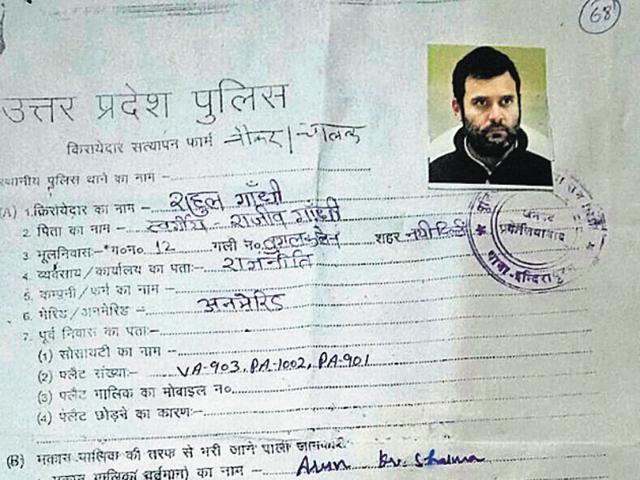 68
उत्तर प्रदेश पुलिस
किरायेदार सत्यापन फार्म नौकर / चालक
स्थानीय पुलिस थाने का नाम –
(A) 1.किरायेदार का नाम – राहुल गाँधी
2. पिता का नाम – स्वर्गीय - राजीव गाँधी
3. मूलनिवास:-*म०न० 12 गली न० तुगलक लेन शहर नयी दिल्ली
4. व्यवसाय / कार्यालय का पता:- राजनीति
5. कम्पनी / फर्म का नाम –
6. मेरिड / अनमेरिड – अनमैरिड
7. पूर्व निवास का पता:-
(1) सोसायटी का नाम –
(2) फ्लैट संख्या:- VA-903, PA-1002, PA-901
(3) फ्लैट मालिक का मोबाइल न०
(4) फ्लैट छोड़ने का कारण:-
(B) मकान मालिक की तरफ से भरी जाने वाली जानकारी
मकान मालिक (वर्तमान) का नाम – Arun Kr. Sharma